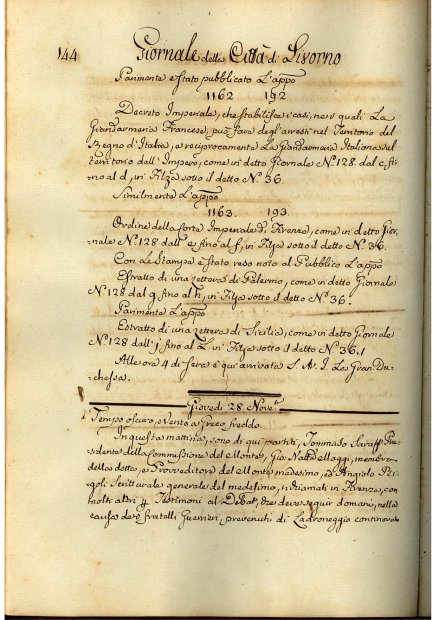 144 Giornale della Città di Livorno
Parimente è stato pubblicato L'appo
1162 192
Decreto Imperiale, che stabilisce i casi, ne' quali La
Giandarmeria Francese, può fare degl'arresti nel Territorio del
Regno d'Italia, e reciprocamente La Giandarmeria Italiana sul
territorio dell'Impero, come in detto Giornale N.º 128. dal c, fi-
no al d, in Filza sotto il detto N.º 36.
Similmente L'appo
1163. 193.
Ordine della Corte Imperiale di Firenze, come in detto Gior-
nale N.º 128 dall' e fino al f, in Filza sotto il detto N.º 36.
Con Le Stampe è stato reso noto al Pubblico L'appo
Estratto di una Lettera di Palermo, come in detto Giornale
N.º 128 dal g fino al h, in Filza sotto il detto N.º 36.
Parimente L'appo
Estratto di una Lettera di Sicilia, come in detto Giornale
N.º 128 dall' j fino al L in Filza sotto il detto N.º 36.
Alle ore 4 di sera è qui arrivata S. A. I. La Gran Du-
chessa.
Giovedì 28. Nov.e
Tempo oscuro, e Vento a Greco freddo.
In questa mattina, sono di qui partiti, Tommaso Pre-
sidente della Commissione del Monte, Gio. membro
della detta, e Provveditore del Monte medesimo, ed Angiolo
Scritturale generale del medesimo, richiamati in Firenze, con
molti altri p Testimoni al Debat, che deve seguir domani, nella
causa de' fratelli Guerrieri, prevenuti di Ladroneggio continovato